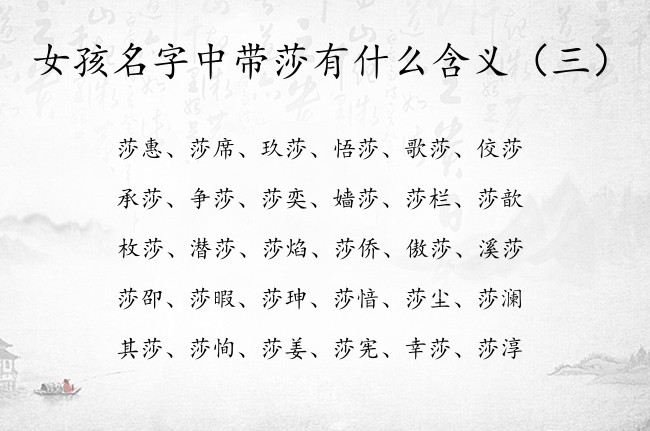 女孩名字中带莎有什么含义（三）
莎惠、莎席、玖莎、悟莎、歌莎、佼莎
承莎、争莎、莎奕、嫱莎、莎栏、莎歆
枚莎、潜莎、莎焰、莎侨、傲莎、溪莎
莎邵、莎暇、莎珅、莎愔、莎尘、莎澜
其莎、莎恂、莎姜、莎宪、幸莎、莎淳